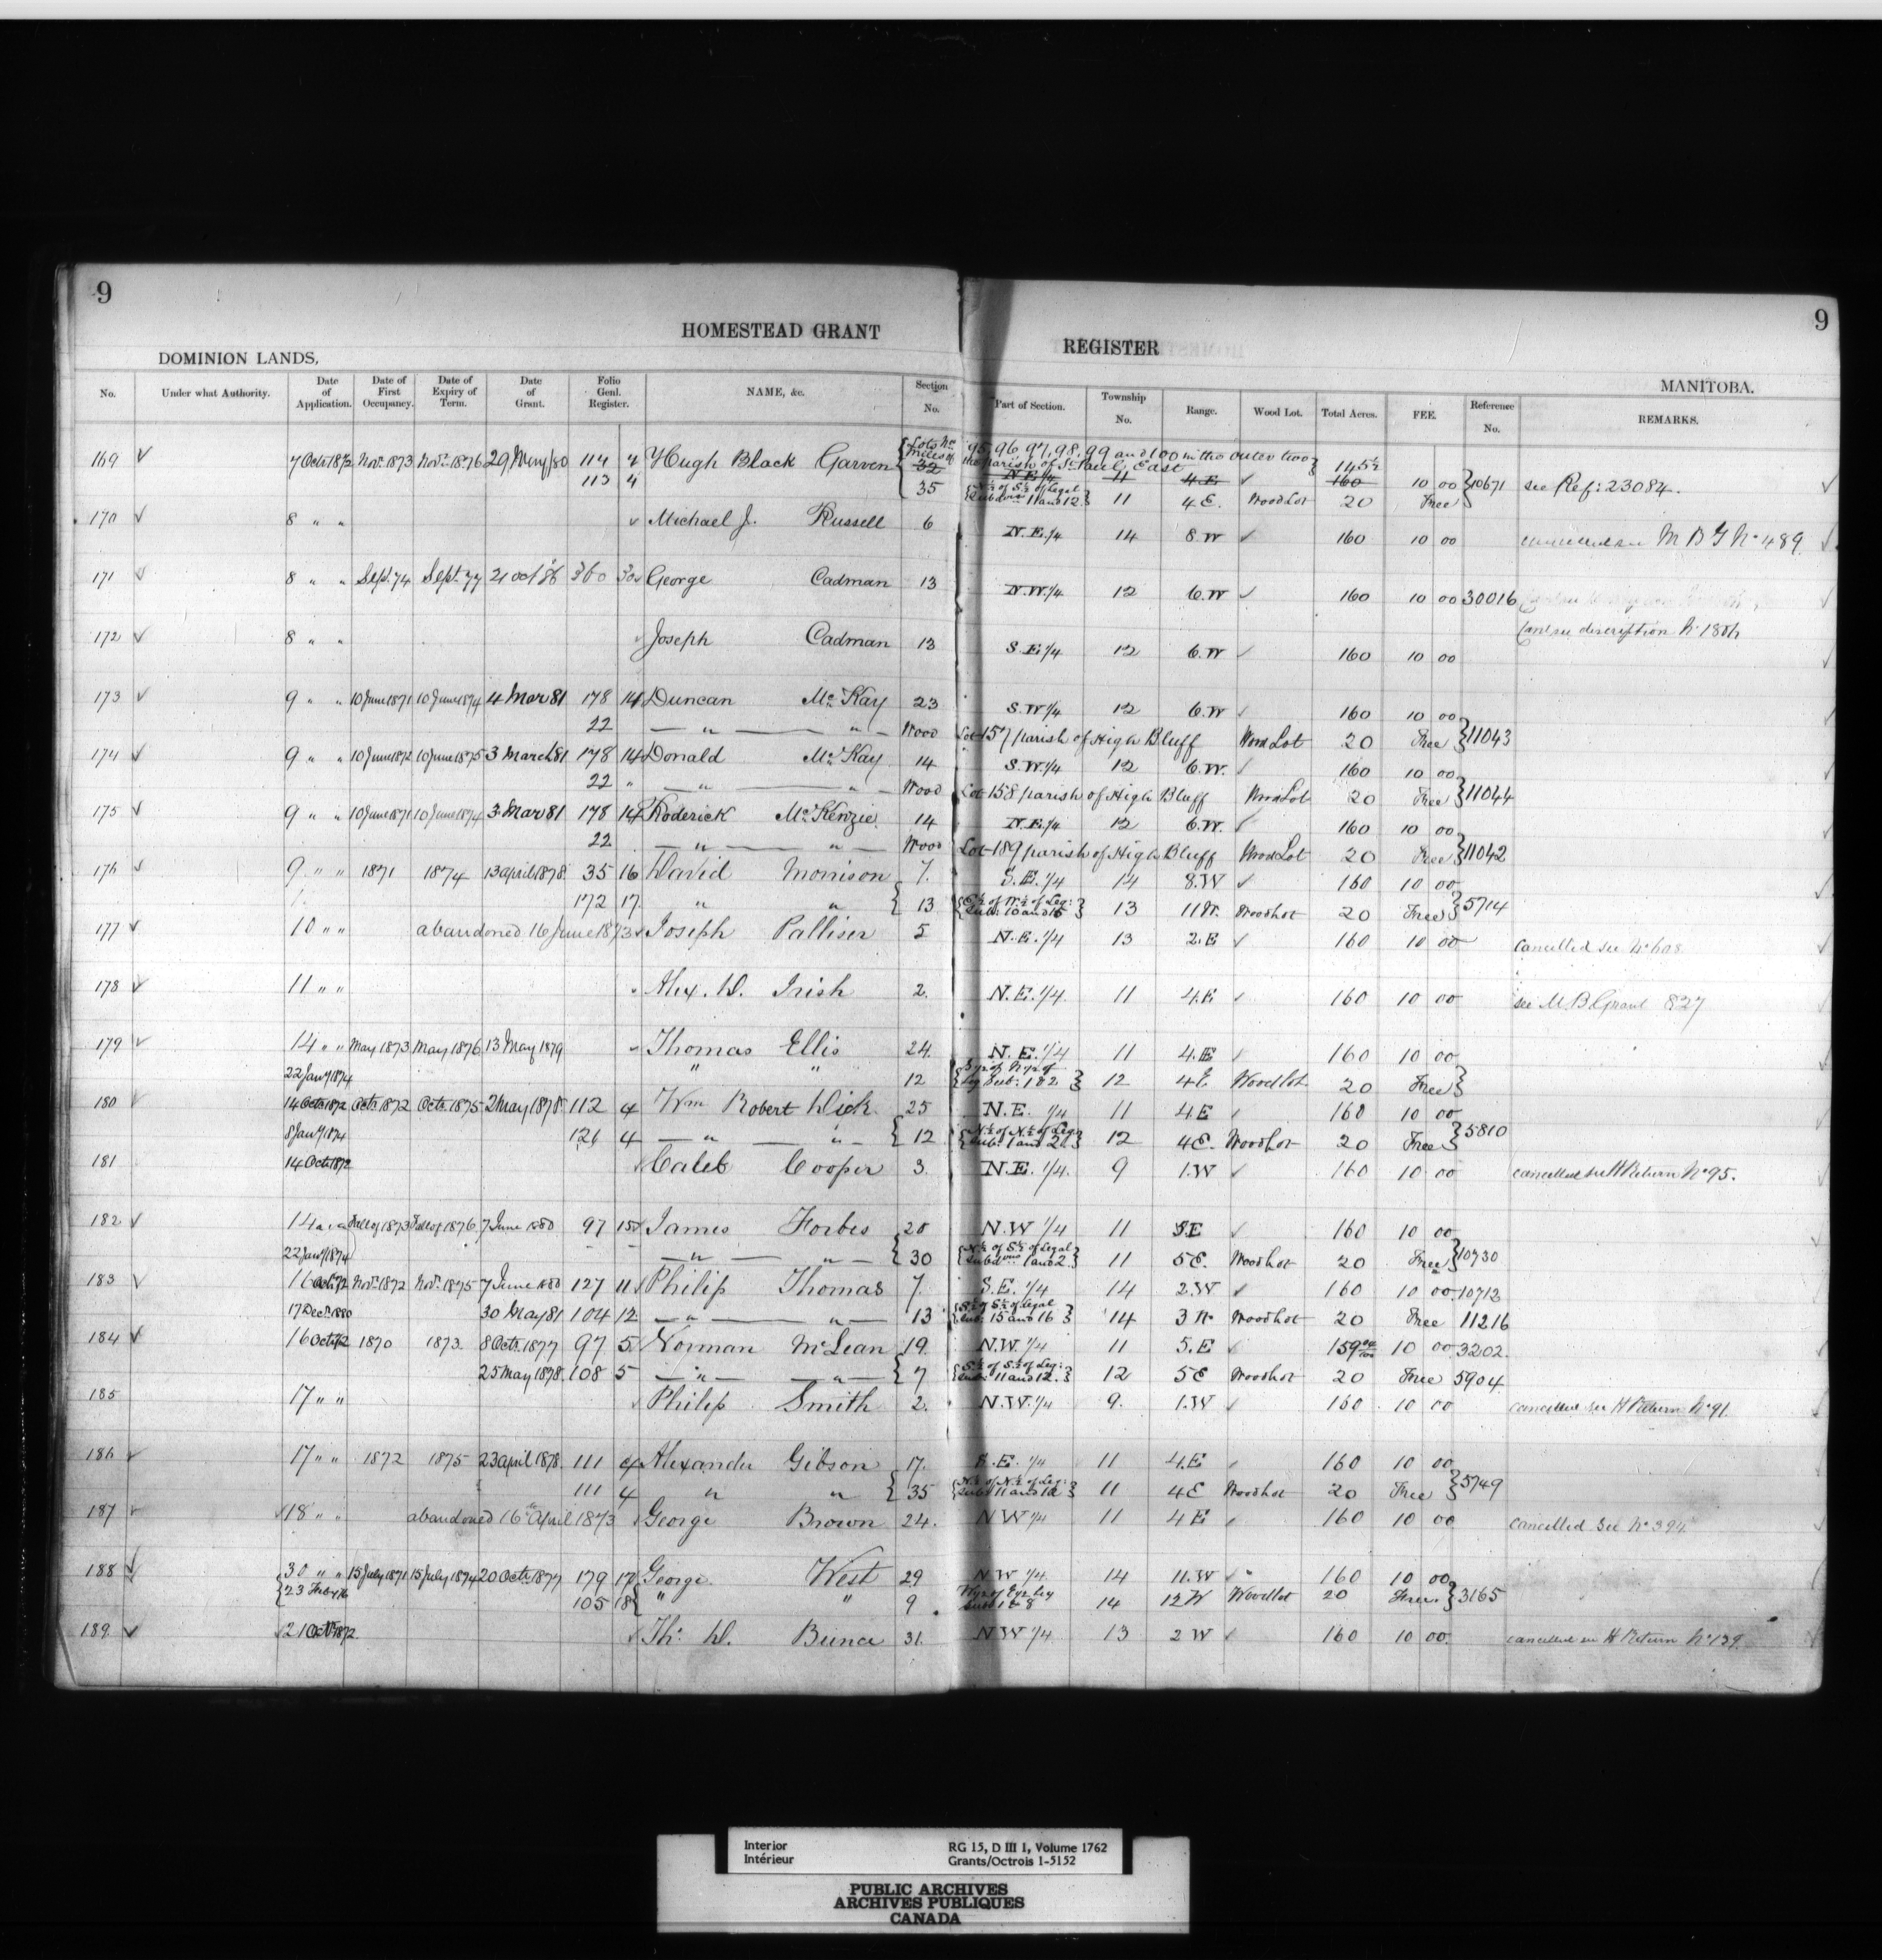 9
9
HOMESTEAD GRANT REGISTER
DOMINION LANDS,
MANITOBA.
No. Under what Authority. Date of Application. Date of First Occupancy. Date of Expiry of Term. Date of Grant. Folio Genl. Register. NAME, &c. Section No. Part of Section. Township No. Range. Wood Lot. Total Acres. FEE. Reference No. REMARKS.
Lots Nos 95, 96, 97, 98, 99 and 100 in the outer two
169 ✓ 7 Octr 1872 Novr 1873 Novr 1876 29 May/80 114 4 Hugh Black Garven miles of the parish of St Paul, East 145½
32 N.E.¼ 11 4.E ✓ 160 10 00 10671 see Ref: 23084.
113 4 35 N½ of S½ of Legal Subdvns 11 and 12 11 4 E. Wood Lot 20 Free
170 ✓ 8 " " Michael J. Russell 6 N.E.¼ 14 8.W ✓ 160 10 00 M B G No 489
171 8 " " Sept. 74 Sept. 77 21 oct 86 360 30 George Cadman 13 N.W.¼ 12 6.W ✓ 160 10 00 30016
172 ✓ 8 " " Joseph Cadman 13 S.E.¼ 12 6.W ✓ 160 10 00 discription No 1804
173 ✓ 9 " " 10 June 1871 10 June 1874 4 Mar 81 178 14 Duncan McKay 23 S.W¼ 12 6.W ✓ 160 10 00
22 — " — " — Wood Lot 157 parish of High Bluff Wood Lot 20 Free 11043
174 ✓ 9 " " 10 June 1872 10 June 1875 3 March 81 178 14 Donald McKay 14 S.W¼ 12 6.W. ✓ 160 10 00
22 " — " — " — Wood Lot 158 parish of High Bluff Wood Lot 20 Free 11044
175 ✓ 9 " " 10 June 1871 10 June 1874 3 Mar 81 178 14 Roderick McKenzie 14 N.E.¼ 12 6.W. ✓ 160 10 00
22 — " — " — Wood Lot 189 parish of High Bluff Wood Lot 20 Free 11042
176 ✓ 9 " " 1871 1874 13 april 1878 35 16 David Morrison 7. S.E.¼ 14 8.W ✓ 160 10 00
172 17 " " 13 E½ of W.½ of Leg: Sub: 10 and 15 13 11 W. Wood Lot 20 Free 5714
177 ✓ 10 " " abandoned 16 June 1873 Joseph Palliser 5 N.E.¼ 13 2.E ✓ 160 10 00 cancelled see No 608
178 ✓ 11 " " Alex. D. Irish 2. N.E.¼ 11 4.E ✓ 160 10 00 see M.B Grant 827
179 ✓ 14 " " May 1873 May 1876 13 May 1879 Thomas Ellis 24. N.E.¼ 11 4.E ✓ 160 10 00
22 Jany 1874 " " 12 S½ of N½ of Leg Sub: 1 & 2 12 4 E Wood lot 20 Free
180 ✓ 14 Octr 1872 Octr. 1872 Octr. 1875 2 May 1878 112 4 Wm Robert Dick 25 N.E. ¼ 11 4.E ✓ 160 10 00
8 Jany 1874 121 4 — " — " — 12 N.½ of N.½ of Leg. Sub: 1 and 2 12 4 E. Wood Lot 20 Free 5810
181 14 Octr 1872 Caleb Cooper 3. N.E.¼ 9 1.W ✓ 160 10 00 cancelled see H Return No 95.
182 ✓ 14 " " Fall of 1873 Fall of 1876 7 June 1880 97 15 James Forbes 20 N.W ¼ 11 5.E ✓ 160 10 00
22 Jany 1874 — " — " — 30 N½ of S½ of Legal Subdvns 1 and 2 11 5 E. Wood Lot 20 Free 10730
183 ✓ 16 Oct 72 Novr. 1872 Novr. 1875 7 June 1880 127 11 Philip Thomas 7. S.E.¼ 14 2.W ✓ 160 10 00 10712
17 Decr 1880 30 May 81 104 12 — " — " — 13 S½ of S½ of Legal Sub: 15 and 16 14 3 W Wood Lot 20 Free 11216
184 ✓ 16 Oct 72 1870 1873. 8 Octr. 1877 97 5 Norman McLean 19. N.W.¼ 11 5.E ✓ 159 10 00 3202
25 May 1878. 108 5 — " — " — 7 S.½ of S.½ of Leg: Sub: 11 and 12 12 5 E Wood Lot 20 Free 5904
185 17 " " Philip Smith 2. N.W.¼ 9. 1.W ✓ 160 10 00 cancelled see H Return No 91.
186 ✓ 17 " " 1872 1875 23 april 1878. 111 4 Alexander Gibson 17. ¼ 11 4.E ✓ 160 10 00
111 4 " " 35 N.½ of N.½ of Leg: Sub: 11 and 12 11 4 E Wood Lot 20 Free 5749
187 ✓ 18 " " abandoned 16th April 1873 George Brown 24. N W ¼ 11 4 E ✓ 160 10 00 cancelled See No 394
188 ✓ 30 " " 15 July 1871 15 July 1874 20 Octr 1877 179 17 George West 29 N W ¼ 14 11.W ✓ 160 10 00
23 Feby 76 105 18 " " 9 W½ of E½ Leg Sub 1 & 8 14 12 W Wood lot 20 Free. 3165
189. ✓ 21 Oct 1872 Ths. D. Bunce 31. N W ¼ 13 2 W ✓ 160 10 00. cancelled see H Return No 129
Interior
Intérieur
RG 15, D III 1, Volume 1762
Grants/Octrois 1-5152
PUBLIC ARCHIVES
ARCHIVES PUBLIQUES
CANADA